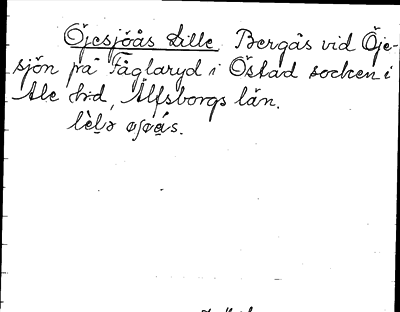 Öjesjöås Lille Bergås vid Öje-
sjön på Fåglaryd i Östad socken i
Ale hd, Älfsborgs län.